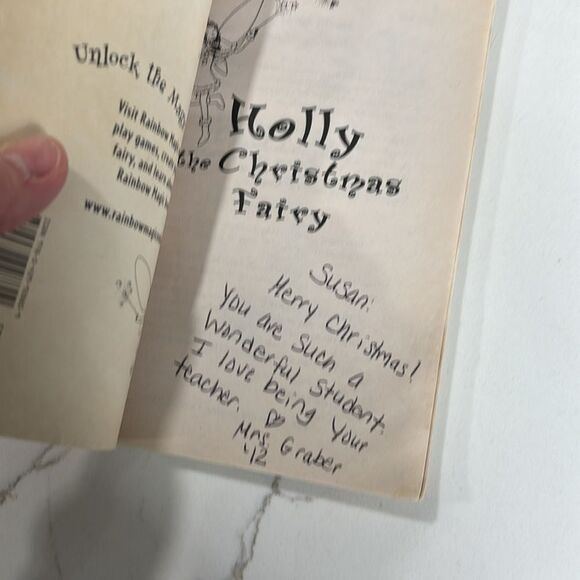 Unlock the Magic
Visit Rainbow
play games,
fairy, and
Rainbow Magic
www.rainbowmagic
Holly
the Christmas
Fairy
Susan:
Merry Christmas!
You are such a
Wonderful Student.
I love being your
teacher. ♡
Mrs. Graber
'12